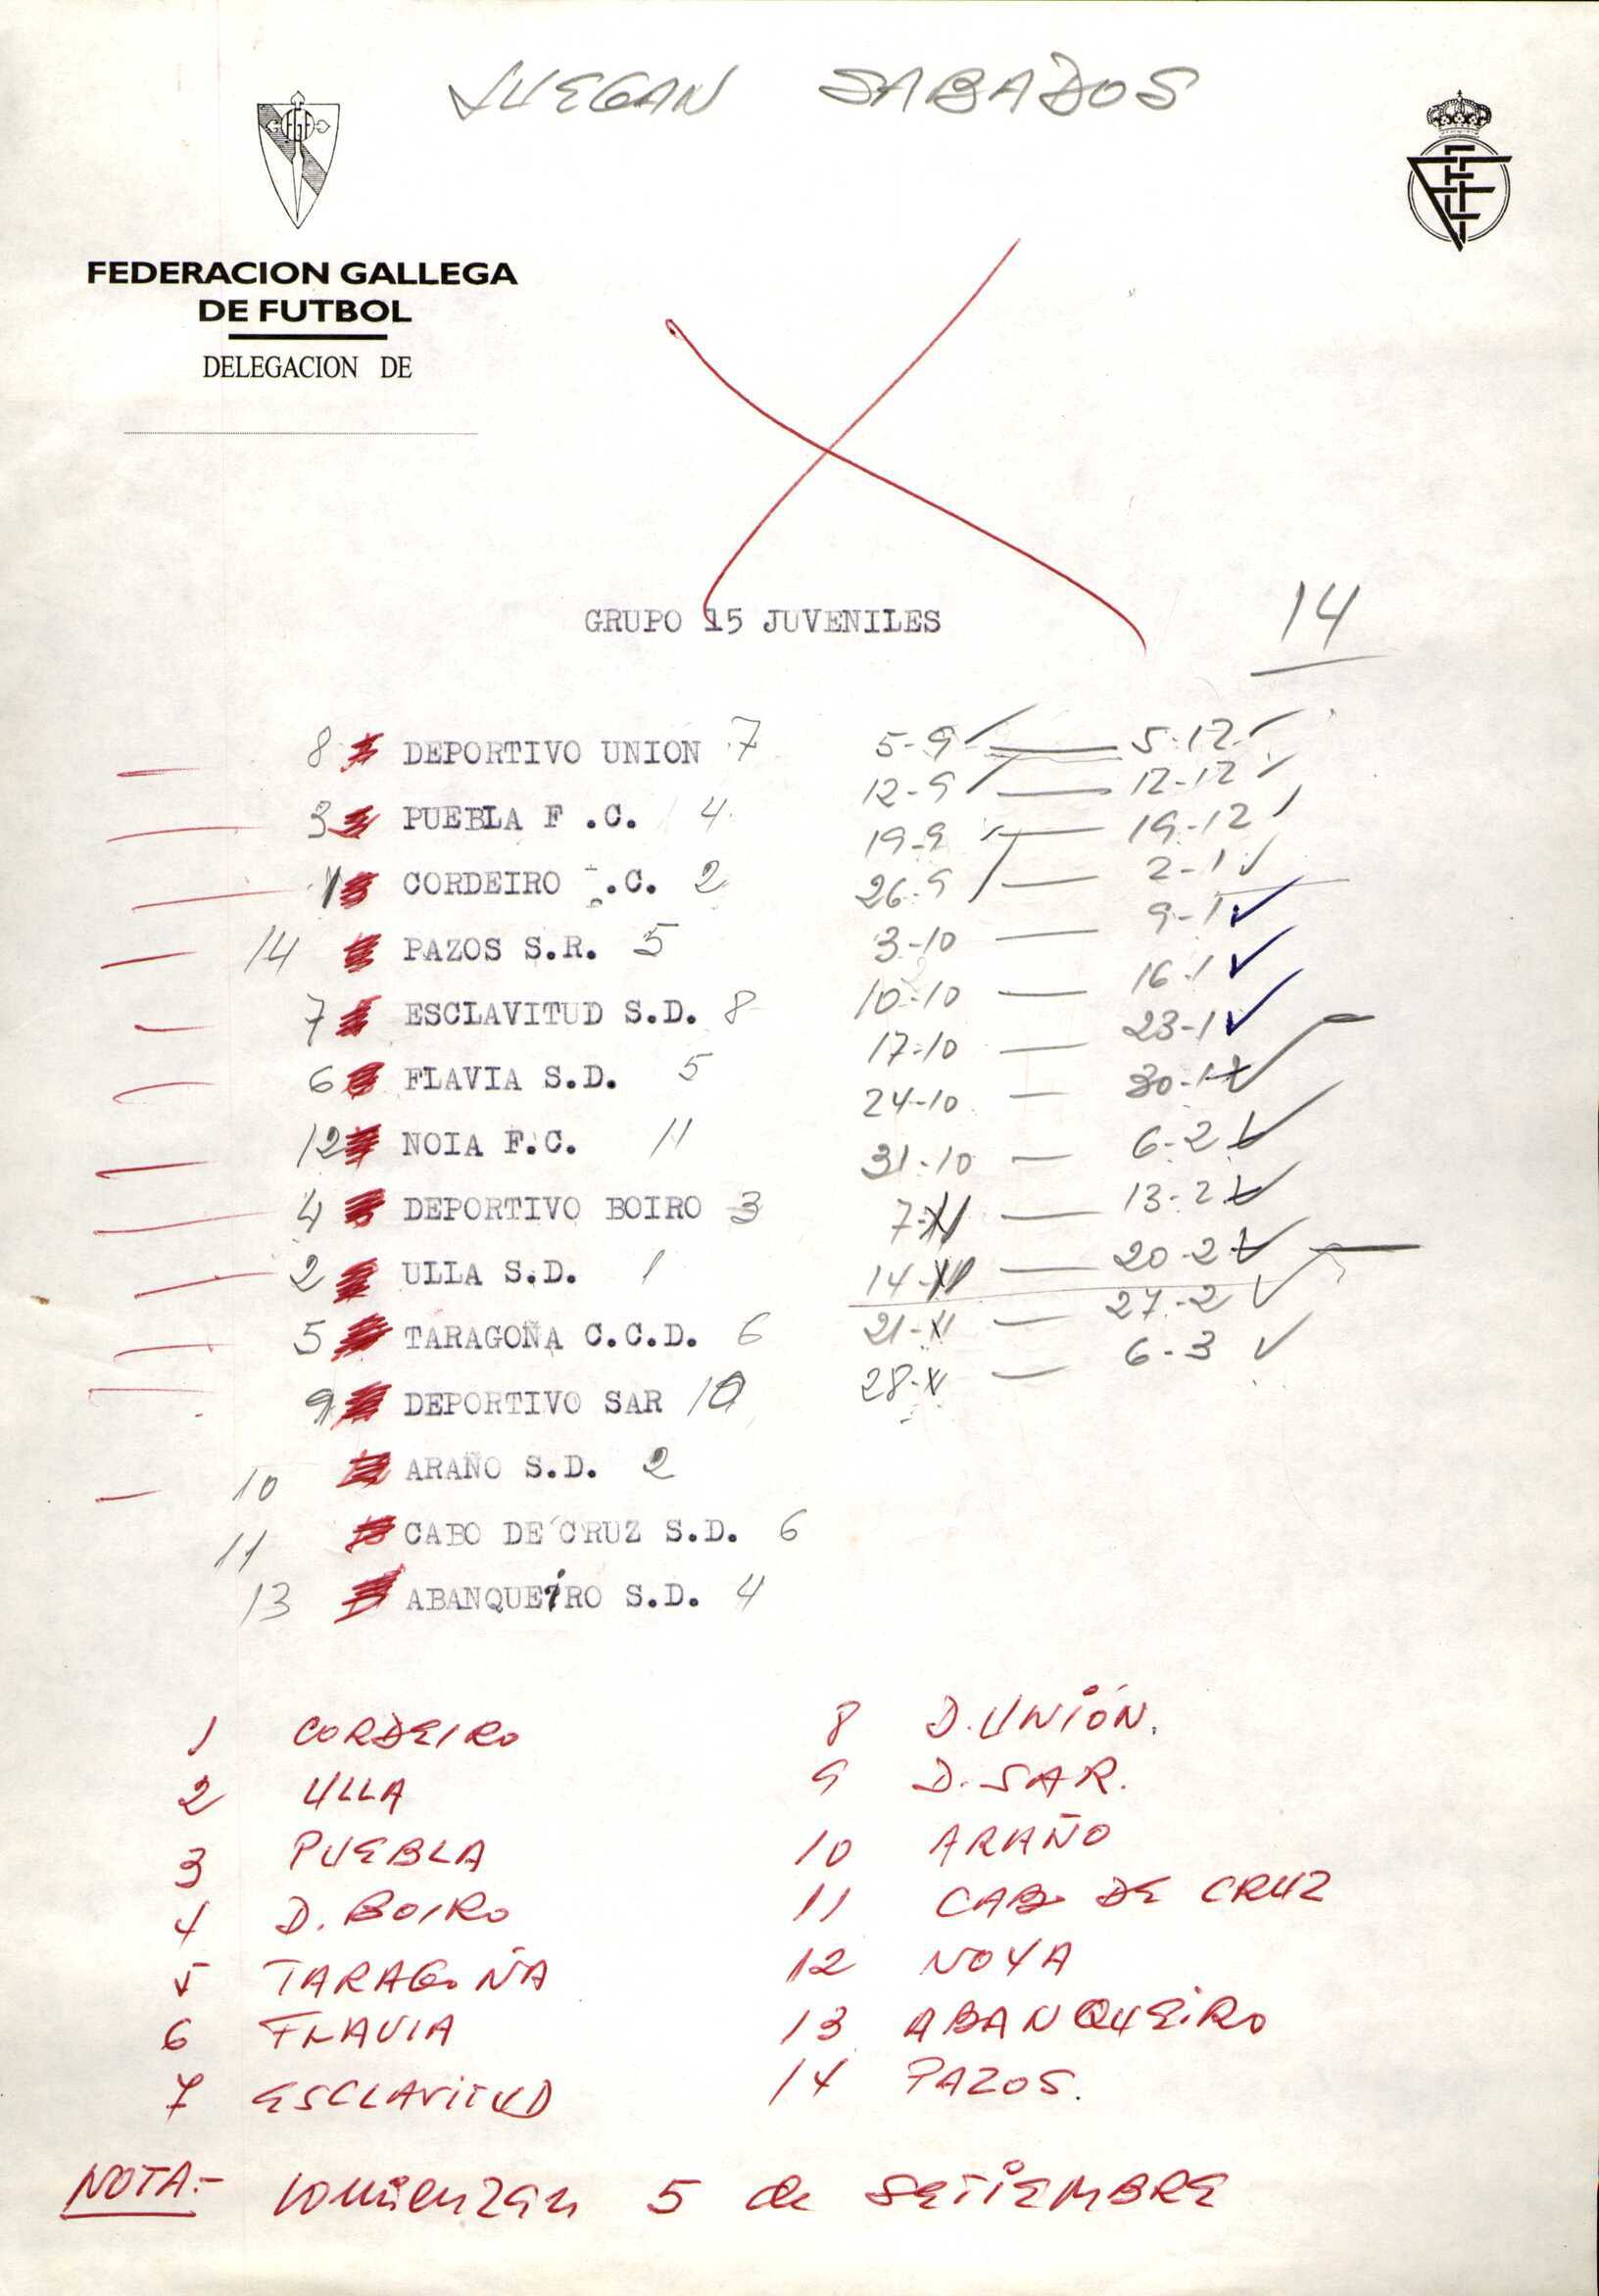 JUEGAN SABADOS
FEDERACION GALLEGA
DE FUTBOL
DELEGACION DE
GRUPO 15 JUVENILES
14
8 DEPORTIVO UNION 7
3 PUEBLA F .C. 4
1 CORDEIRO .C. 2
14 PAZOS S.R. 5
7 ESCLAVITUD S.D. 8
6 FLAVIA S.D. 5
12 NOIA F.C. 11
4 DEPORTIVO BOIRO 3
2 ULLA S.D. 1
5 TARAGOÑA C.C.D. 6
9 DEPORTIVO SAR 10
10 ARAÑO S.D. 2
11 CABO DE CRUZ S.D. 6
13 ABANQUEiRO S.D. 4
5-9 — 5-12
12-9 — 12-12
19-9 — 19-12
26-9 — 2-1
3-10 — 9-1
10-10 — 16-1
17-10 — 23-1
24-10 — 30-1
31-10 — 6-2
7-XI — 13-2
14-XI — 20-2
21-XI — 27-2
28-XI — 6-3
1 CORDEIRO
2 ULLA
3 PUEBLA
4 D. BOIRO
5 TARAGOÑA
6 FLAVIA
7 ESCLAViTUD
8 D. UNiÓN.
9 D. SAR.
10 ARAÑO
11 CABO DE CRUZ
12 NOYA
13 ABANQUEiRO
14 PAZOS.
NOTA.- comienzan 5 de SETIEMBRE